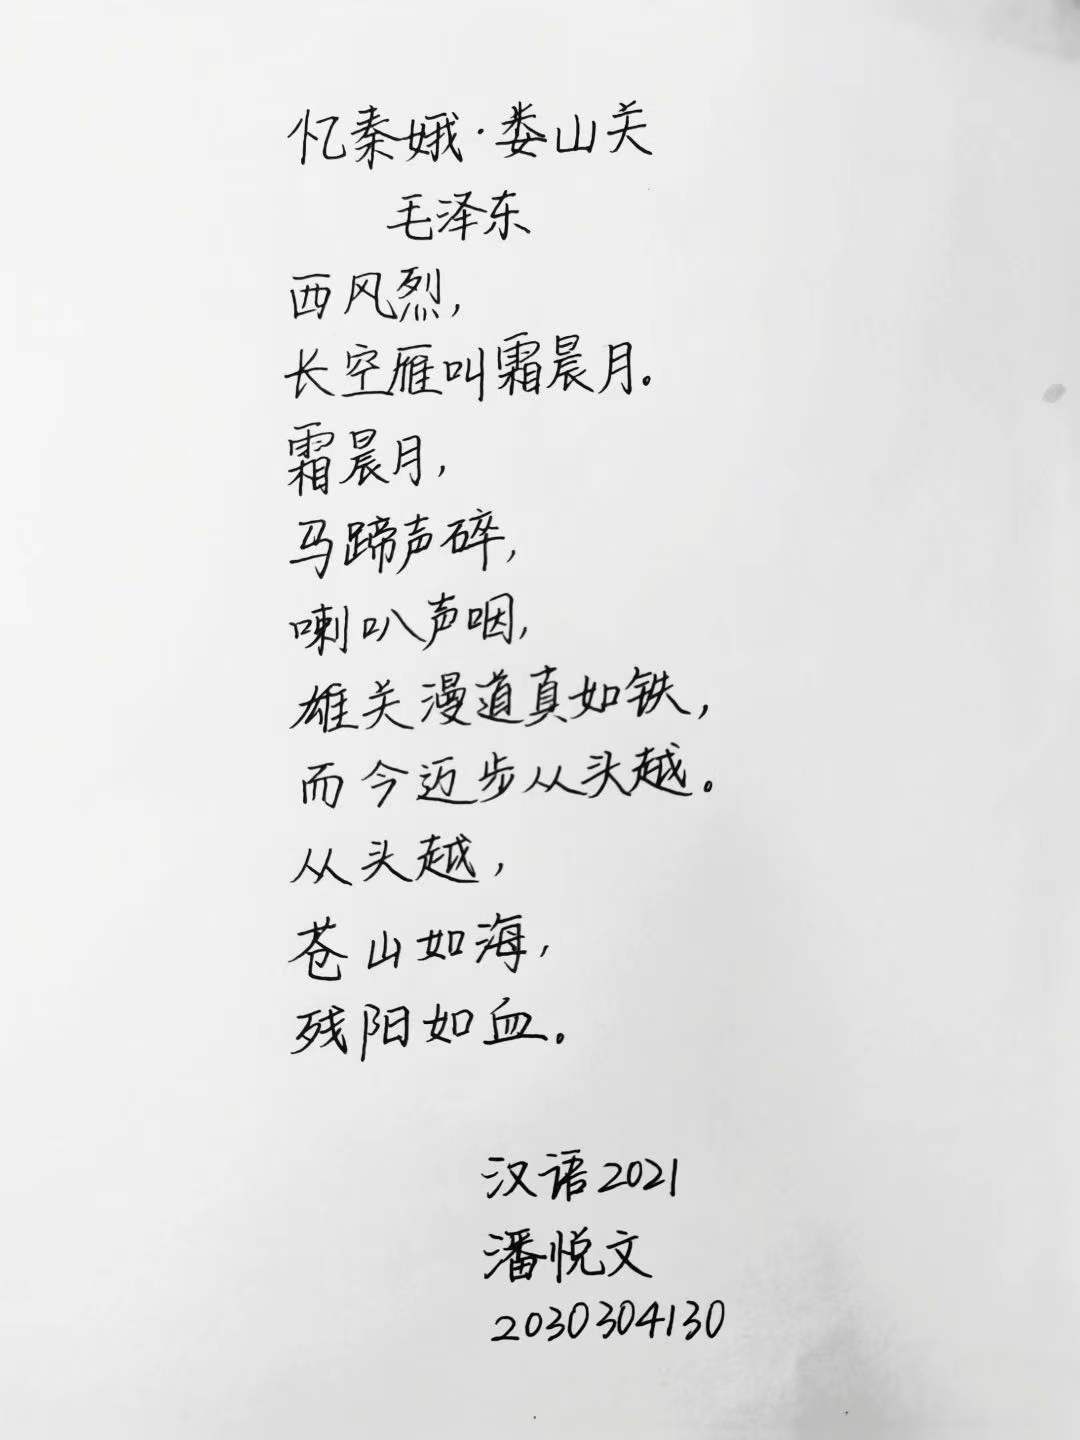 忆秦娥·娄山关
毛泽东
西风烈,
长空雁叫霜晨月。
霜晨月,
马蹄声碎,
喇叭声咽,
雄关漫道真如铁,
而今迈步从头越。
从头越,
苍山如海,
残阳如血。
汉语2021
潘悦文
2030304130